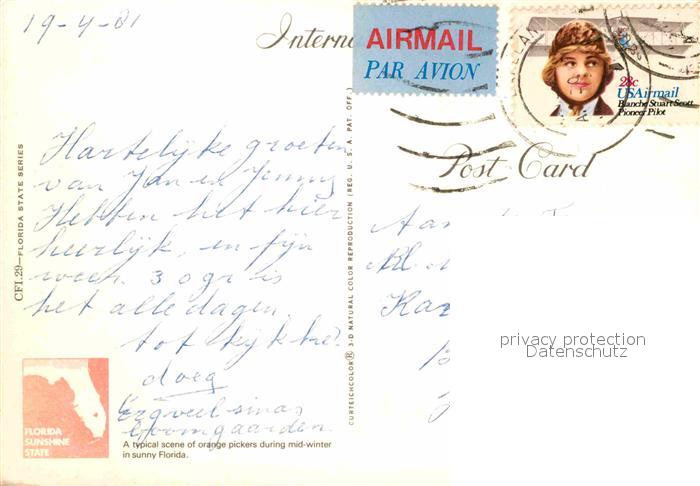 19-4-81
AIRMAIL
PAR AVION
28c
USAirmail
Blanche Stuart Scott
Pioneer Pilot
Post Card
Hartelijke groeten
van Jan en Jenny
Hebben het hier
heerlijk, en fijn
weer. 30 gr is
het alle dagen.
tot kijk he?
doeg
Ergveel sinas
boomgaarden
Aa
Kl
Ka
privacy protection
Datenschutz
CFL29—FLORIDA STATE SERIES
CURTEICHCOLOR® 3-D NATURAL COLOR REPRODUCTION (REG. U. S. A. PAT. OFF.)
FLORIDA
SUNSHINE
STATE
A typical scene of orange pickers during mid-winter
in sunny Florida.